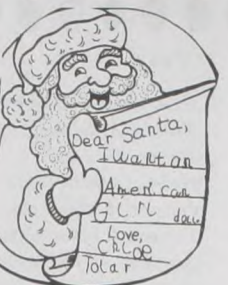 Dear Santa,
I want an
American
Girl doll
Love,
Chloe
Tolar